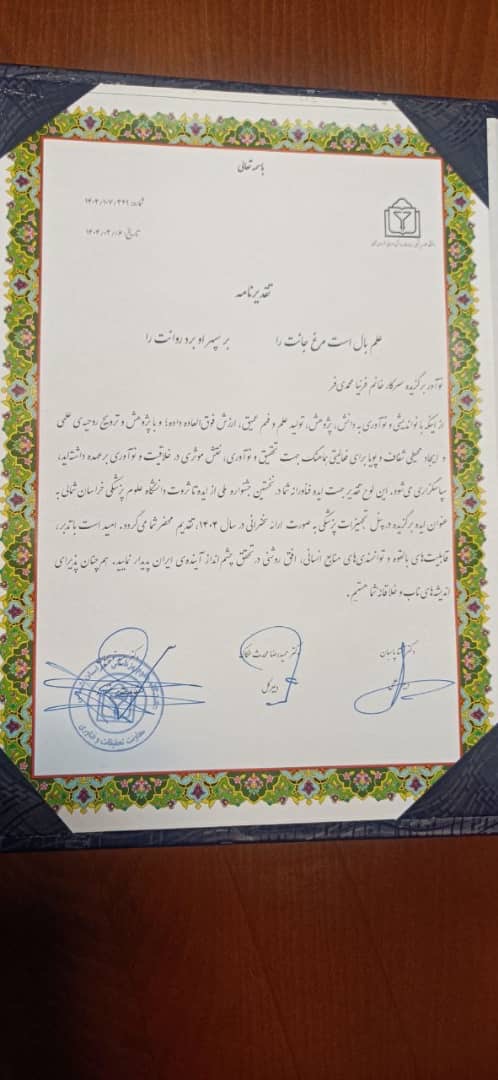 باسمه تعالی
شماره: ۱۴۰۴/۰۷/۲۶۹
تاریخ: ۱۴۰۴/۰۲/۰۶
تقدیرنامه
علم بال است مرغ جانت را بر سپهر او برد روانت را
نوآور برگزیده سرکار خانم فرنیا محمدی فر
از اینکه با نواندیشی و نوآوری به دانش، پژوهش، تولید علم و فهم عمیق، ارزش فوق العاده داده‌اید و با پژوهش و ترویج روحیه‌ی علمی
و ایجاد محیطی شفاف و پویا برای فعالیتی هماهنگ جهت تحقیق و نوآوری، نقش موثری در خلاقیت و نوآوری بر عهده داشته‌اید،
سپاسگزاری می‌شود. این لوح تقدیر جهت ایده فناورانه شما در نخستین جشنواره ملی از ایده تا ثروت دانشگاه علوم پزشکی خراسان شمالی به
عنوان ایده برگزیده در پنل تجهیزات پزشکی به صورت ارائه سخنرانی در سال ۱۴۰۴، تقدیم محضر شما می‌گردد. امید است با تدبیر،
قابلیت‌های بالقوه و توانمندی‌های منابع انسانی، افق روشنی در تحقق چشم انداز آینده‌ی ایران پدیدار نمایید. هم چنان پذیرای
اندیشه‌های ناب و خلاقانه شما هستیم.
دکتر پاسبان
دکتر حمیدرضا محدث
دبیر کل
معاونت تحقیقات و فناوری